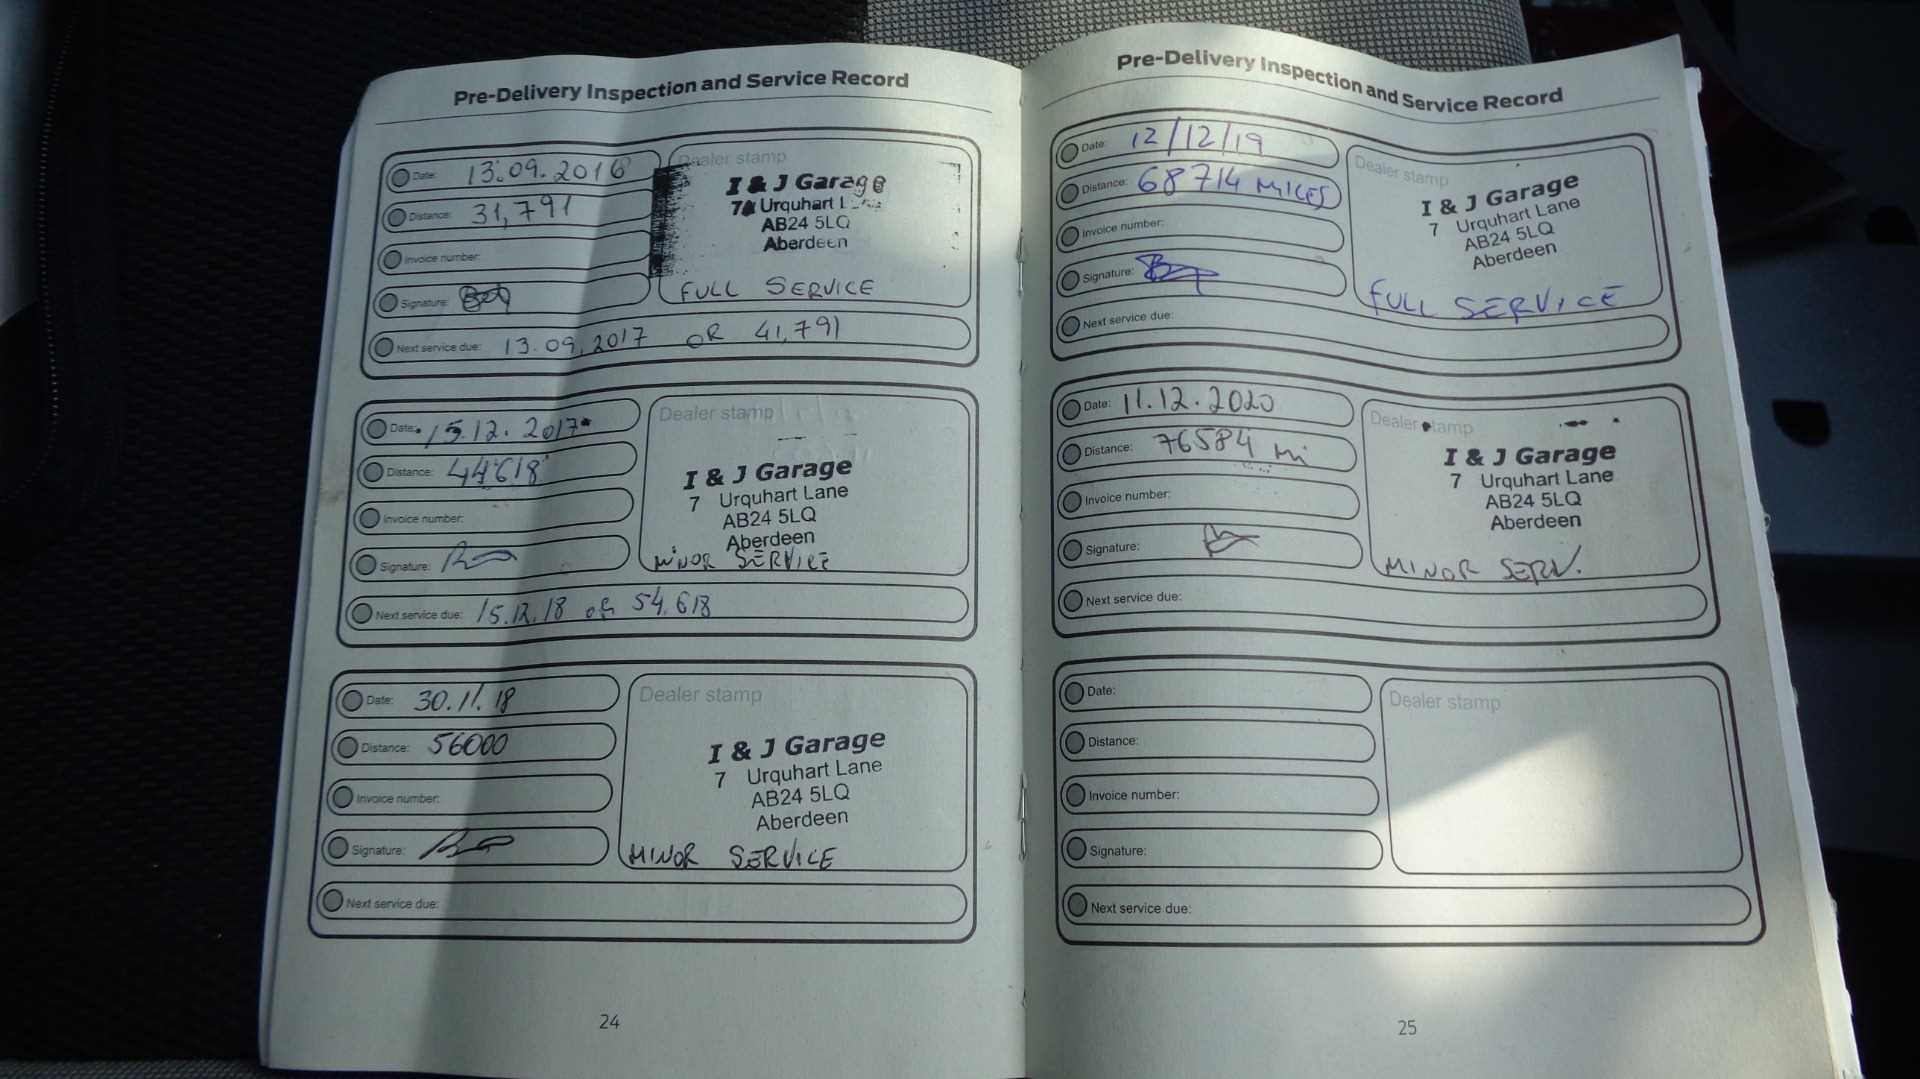 Pre-Delivery Inspection and Service Record
Date: 13.09.2016
Distance: 31,791
Invoice number:
Signature:
Next service due: 13.09.2017 OR 41,791
Dealer stamp
I & J Garage
7 Urquhart
AB24 5LQ
Aberdeen
FULL SERVICE
Date: 15.12.2017
Distance: 44618
Invoice number:
Signature:
Next service due: 15.12.18 or 54.618
Dealer stamp
I & J Garage
7 Urquhart Lane
AB24 5LQ
Aberdeen
MINOR SERVICE
Date: 30.11.18
Distance: 56000
Invoice number:
Signature:
Next service due:
Dealer stamp
I & J Garage
7 Urquhart Lane
AB24 5LQ
Aberdeen
MINOR SERVICE
24
Pre-Delivery Inspection and Service Record
Date: 12/12/19
Distance: 68714 MILES
Invoice number:
Signature:
Next service due:
Dealer stamp
I & J Garage
7 Urquhart Lane
AB24 5LQ
Aberdeen
FULL SERVICE
Date: 11.12.2020
Distance: 76584 mi
Invoice number:
Signature:
Next service due:
Dealer stamp
I & J Garage
7 Urquhart Lane
AB24 5LQ
Aberdeen
MINOR SERV.
Date:
Distance:
Invoice number:
Signature:
Next service due:
Dealer stamp
25